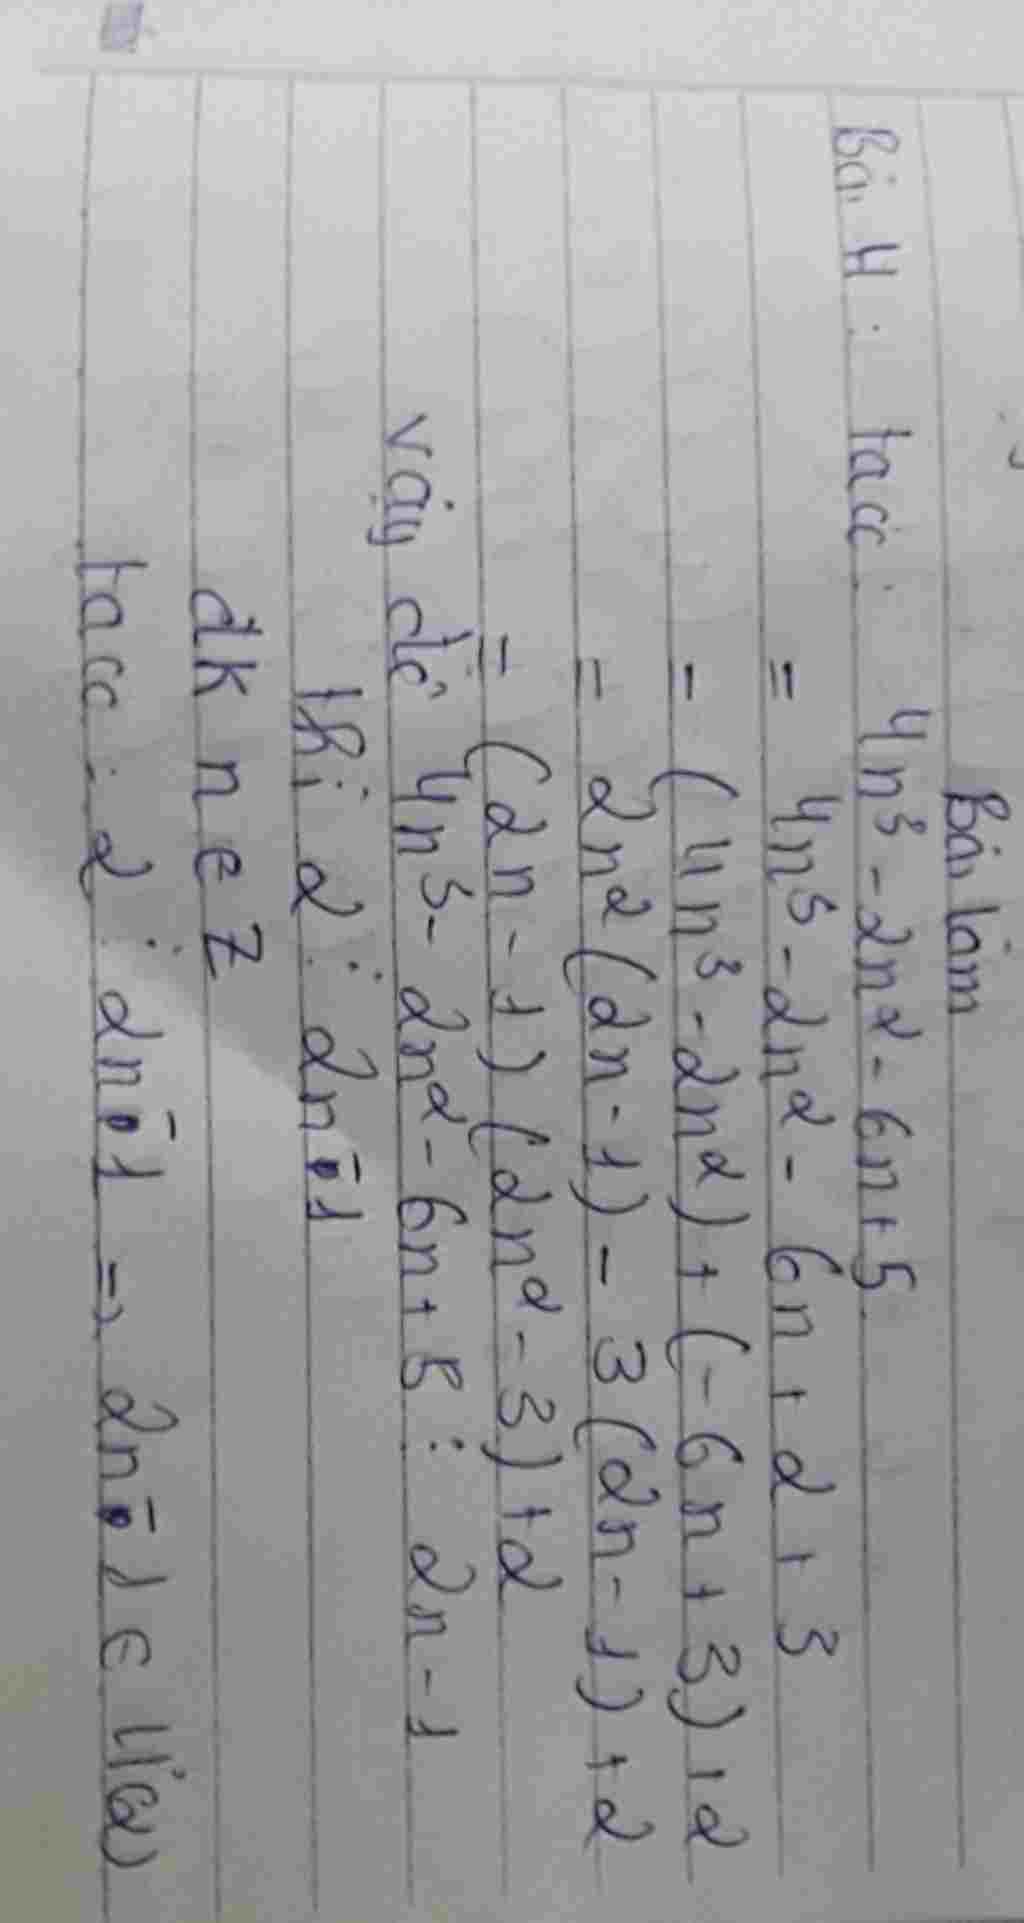 Bài làm
Bài 4: ta có: 4n³ - 2n² - 6n + 5
= 4n³ - 2n² - 6n + 2 + 3
= (4n³ - 2n²) + (-6n + 3) + 2
= 2n² (2n - 1) - 3 (2n - 1) + 2
= (2n - 1) (2n² - 3) + 2
Vậy để 4n³ - 2n² - 6n + 5 ⋮ 2n - 1
thì 2 ⋮ 2n - 1
đk n ∈ Z
ta có: 2 ⋮ 2n - 1 => 2n - 1 ∈ Ư(2)